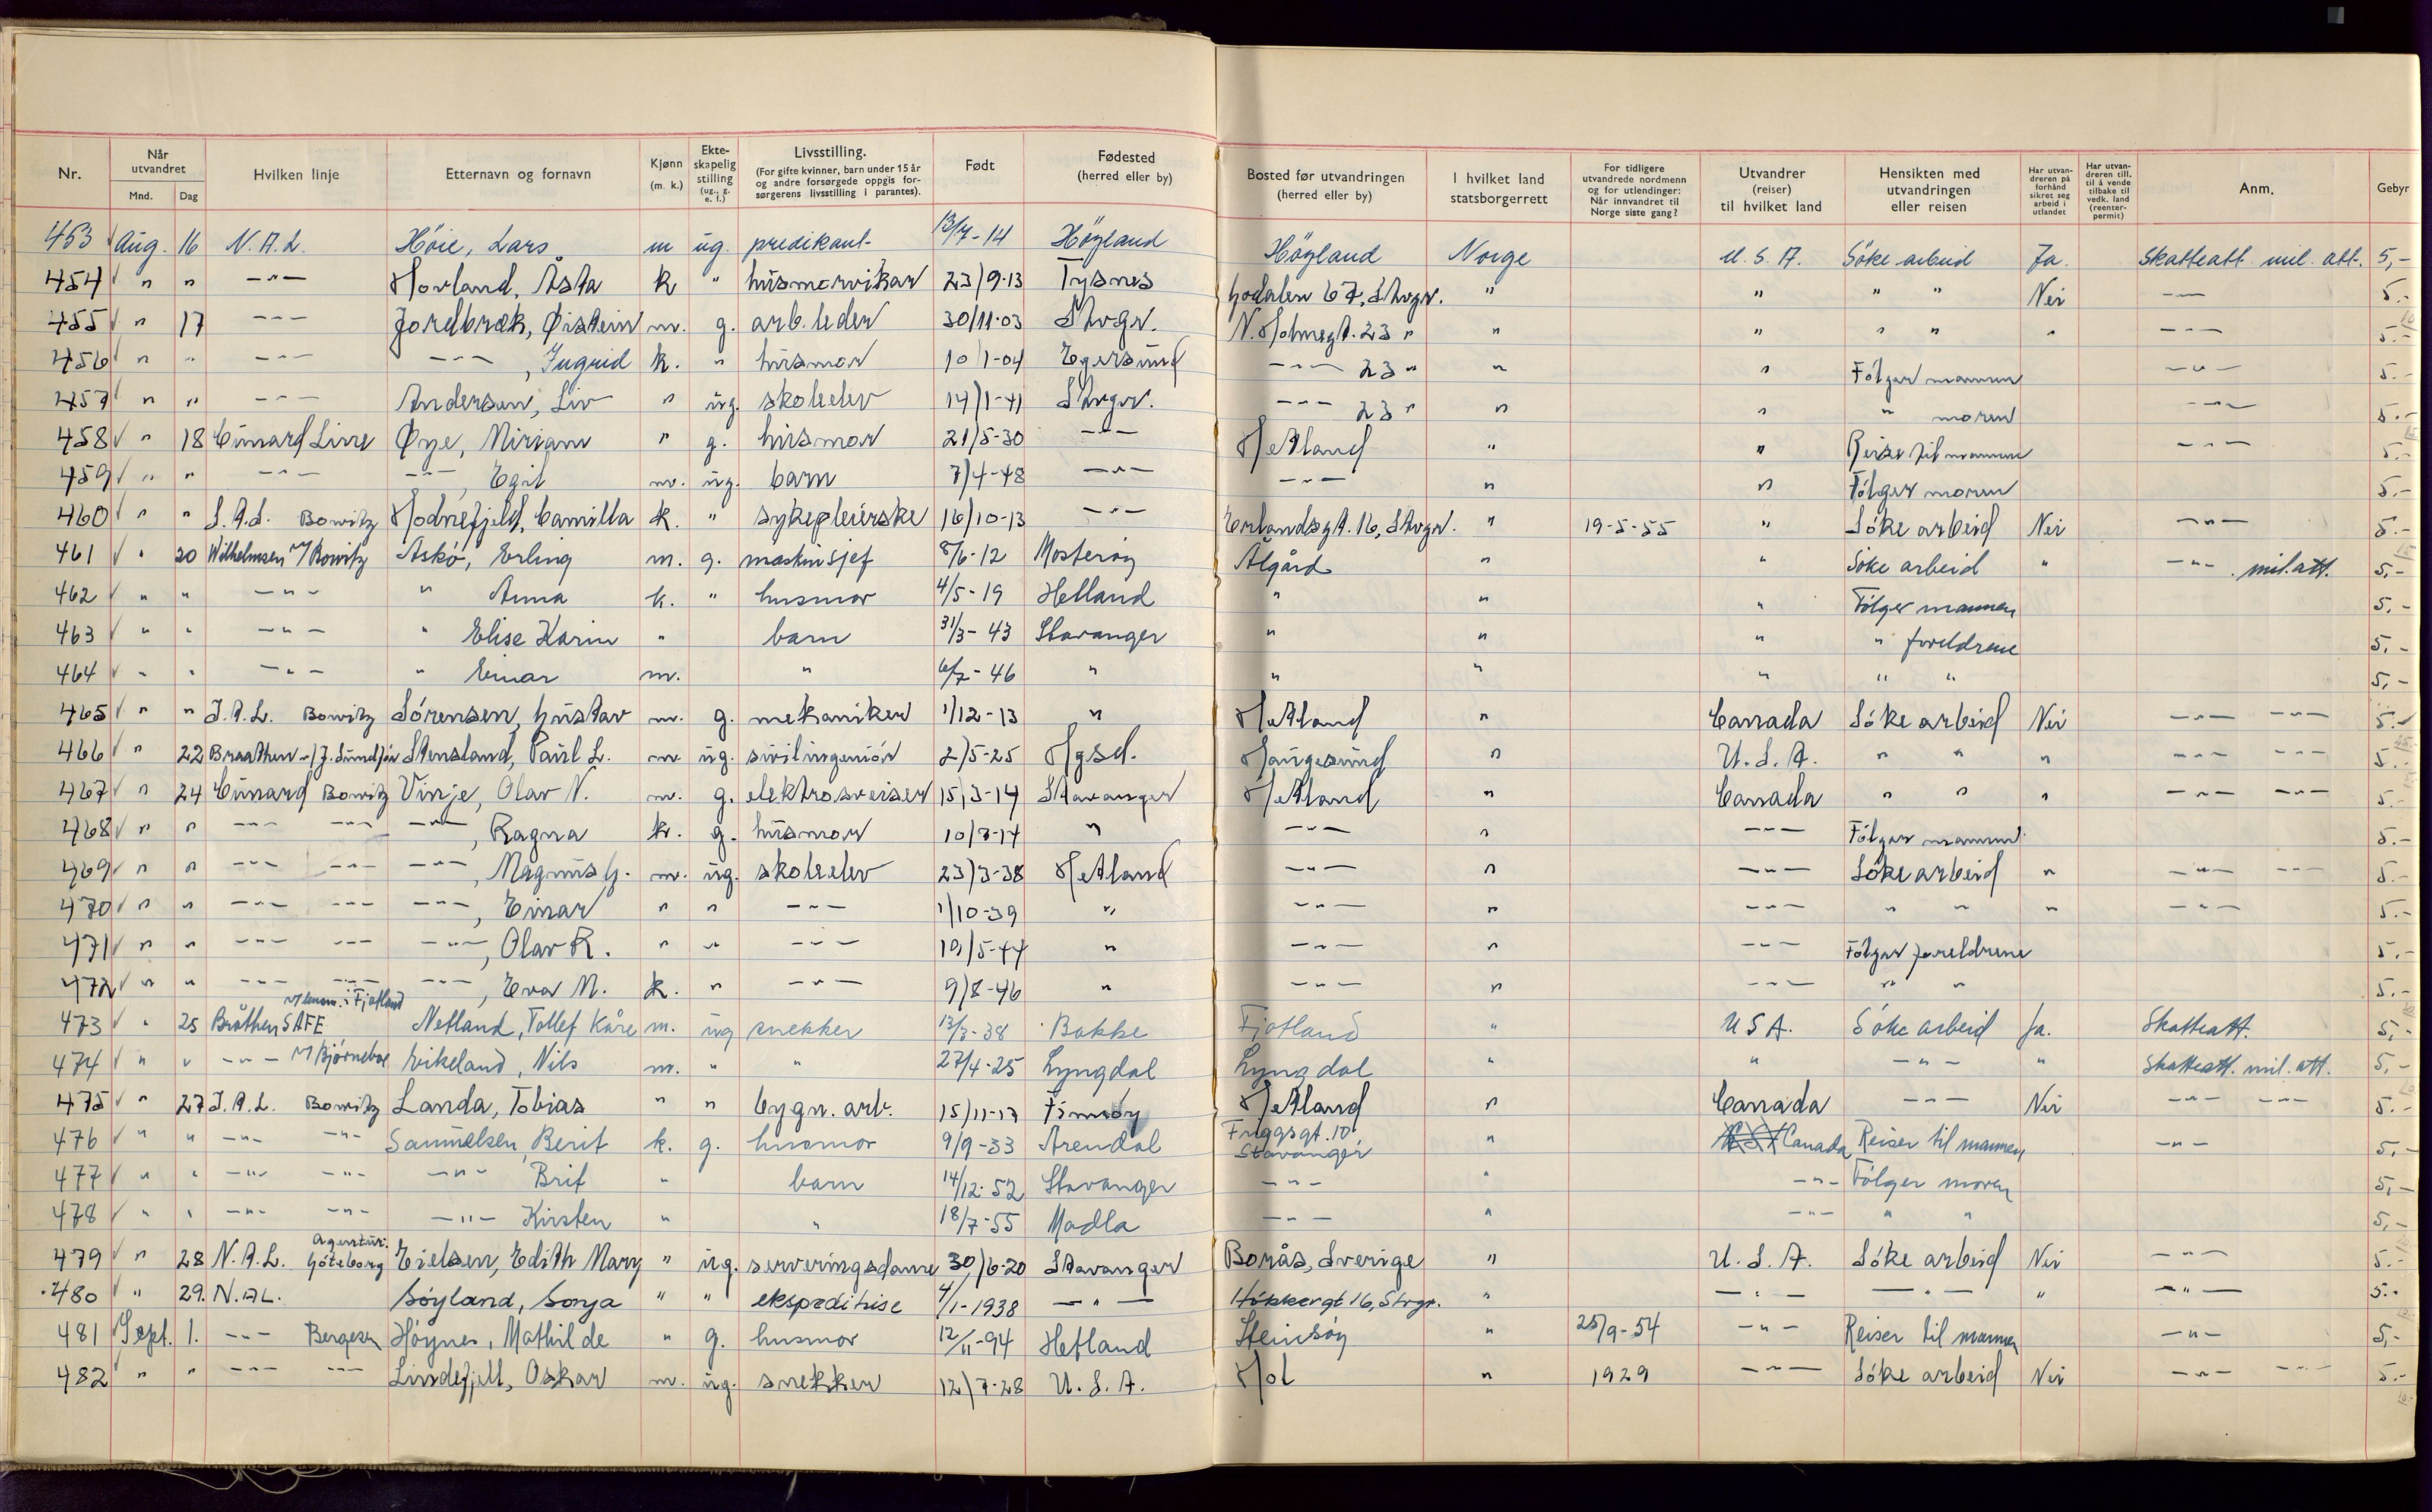 Nr. Når utvandret Mnd. Dag Hvilken linje Etternavn og fornavn Kjønn (m. k.) Ekteskapelig stilling (ug., g. e. f.) Livsstilling. (For gifte kvinner, barn under 15 år og andre forsørgede oppgis forsørgerens livsstilling i parantes). Født Fødested (herred eller by) Bosted før utvandringen (herred eller by) I hvilket land statsborgerrett For tidligere utvandrede nordmenn og for utlendinger: Når innvandret til Norge siste gang? Utvandrer (reiser) til hvilket land Hensikten med utvandringen eller reisen Har utvandreren på forhånd sikret seg arbeid i utlandet Har utvandreren till. til å vende tilbake til vedk. land (reenterpermit) Anm. Gebyr
453 Aug. 16 N.A.L. Höie, Lars m ug. predikant 13/7-14 Höyland Höyland Norge U.S.A. Söke arbeid Ja Skatteatt. mil. att. 5,-
454 " " -"- Hovland, Åsta k " husmorvikar 23/9-13 Tysnes Godalen 67, Stvgr. " " " " Nei -"- 5.-
455 " 17 -"- Jordbræk, Øistein m. g. arb.leder 30/11-03 Stvgr. N. Holmegt. 23 " " " " " " -"- 5.-
456 " " -"- -"-, Ingrid k. " husmor 10/1-04 Egersund -"- 23 " " " Fölger mannen -"- 5.-
457 " " -"- Andersen, Liv " ug. skoleelev 14/1-41 Stvgr. -"- 23 " " " " moren -"- 5.-
458 " 18 Cunard Line Øye, Miriam " g. husmor 21/5-30 -"- Hetland " " Reise til mannen -"- 5.-
459 " " -"- -"-, Egil m. ug. barn 7/4-48 -"- -"- " " Fölger moren 5.-
460 " " S.A.L. Bowitz Hodnefjeld, Camilla k. " sykepleierske 16/10-13 -"- Erlandsgt. 16, Stvgr. " 19-5-55 " Söke arbeid Nei -"- 5.-
461 " 20 Wilhelmsen v/ Bowitz Askö, Erling m. g. maskinsjef 8/6-12 Mosteröy Ålgård " " Söke arbeid " -"- . mil. att. 5,-
462 " " -"- " Anna k. " husmor 4/5-19 Hetland " " " Fölger mannen 5,-
463 " " -"- " Elise Karin " barn 31/3-43 Stavanger " " " " foreldrene 5,-
464 " " -"- " Einar m. " 6/7-46 " " " " " " 5,-
465 " " S.A.L. Bowitz Sörensen, Gustav m. g. mekaniker 1/12-13 " Hetland " Canada Söke arbeid Nei -"- -"- 5.-
466 " 22 Braathen v/ J. Stensland, Paul L. m. ug. sivilingeniör 2/5-25 Hgsd. Haugesund " U.S.A. " " " -"- -"- 5.-
467 " 24 Cunard Bowitz Vinje, Olav N. m. g. elektrosveiser 15/3-14 Stavanger Hetland " Canada " " " -"- -"- 5.-
468 " " -"- -"- -"-, Ragna k. g. husmor 10/7-14 " -"- " -"- Fölger mannen 5.-
469 " " -"- -"- -"-, Magnus G. m. ug. skoleelev 23/3-38 Hetland -"- " -"- Söke arbeid " -"- -"- 5.-
470 " " -"- -"- -"-, Einar " " -"- 1/10-39 " -"- " -"- " " " -"- 5.-
471 " " -"- -"- -"-, Olav R. " " -"- 10/5-44 " -"- " -"- Fölger foreldrene 5,-
472 " " -"- -"- -"-, Eva M. k. " -"- 9/8-46 " -"- " -"- " " 5.-
473 " 25 Bråthen SAFE Fjotland Netland, Tollef Kåre m. ug snekker 13/3-38 Bakke Fjotland " USA. Söke arbeid Ja. Skatteatt. 5,-
474 " " -"- v/ Björnebo Eikeland, Nils m. " " 27/4-25 Lyngdal Lyngdal " " -"- " Skatteatt. mil. att. 5,-
475 " 27 S.A.L. Bowitz Landa, Tobias " " bygn. arb. 15/11-17 Finnöy Hetland " Canada -"- Nei -"- -"- 5.-
476 " " -"- -"- Samuelsen, Berit k. g. husmor 9/9-33 Arendal Friggsgt. 10 Stavanger " Canada Reiser til mannen -"- 5,-
477 " " -"- -"- -"- Brit " barn 14/12-52 Stavanger -"- " -"- Fölger moren 5,-
478 " " -"- -"- -"- Kirsten " " 18/7-55 Madla -"- " -"- " " 5,-
479 " 28 N.A.L. Agentur: Göteborg Eielsen, Edith Mary " ug. serveringsdame 30/6-20 Stavanger Borås, Sverige " U.S.A. Söke arbeid Nei -"- 5.-
480 " 29. N.A.L. Söyland, Sonja " " ekspeditrise 4/1-1938 -"- Hökkergt 16, Stvgr. " -"- -"- " -"- 5.-
481 Sept. 1. -"- Bergesen Höynes, Mathilde " g. husmor 12/11-94 Hetland Steinsöy " 25/9-54 -"- Reiser til mannen -"- 5,-
482 " " -"- -"- Lindefjell, Oskar m. ug. snekker 12/7-28 U.S.A. Hol " 1929 -"- Söke arbeid Nei -"- -"- 5.-